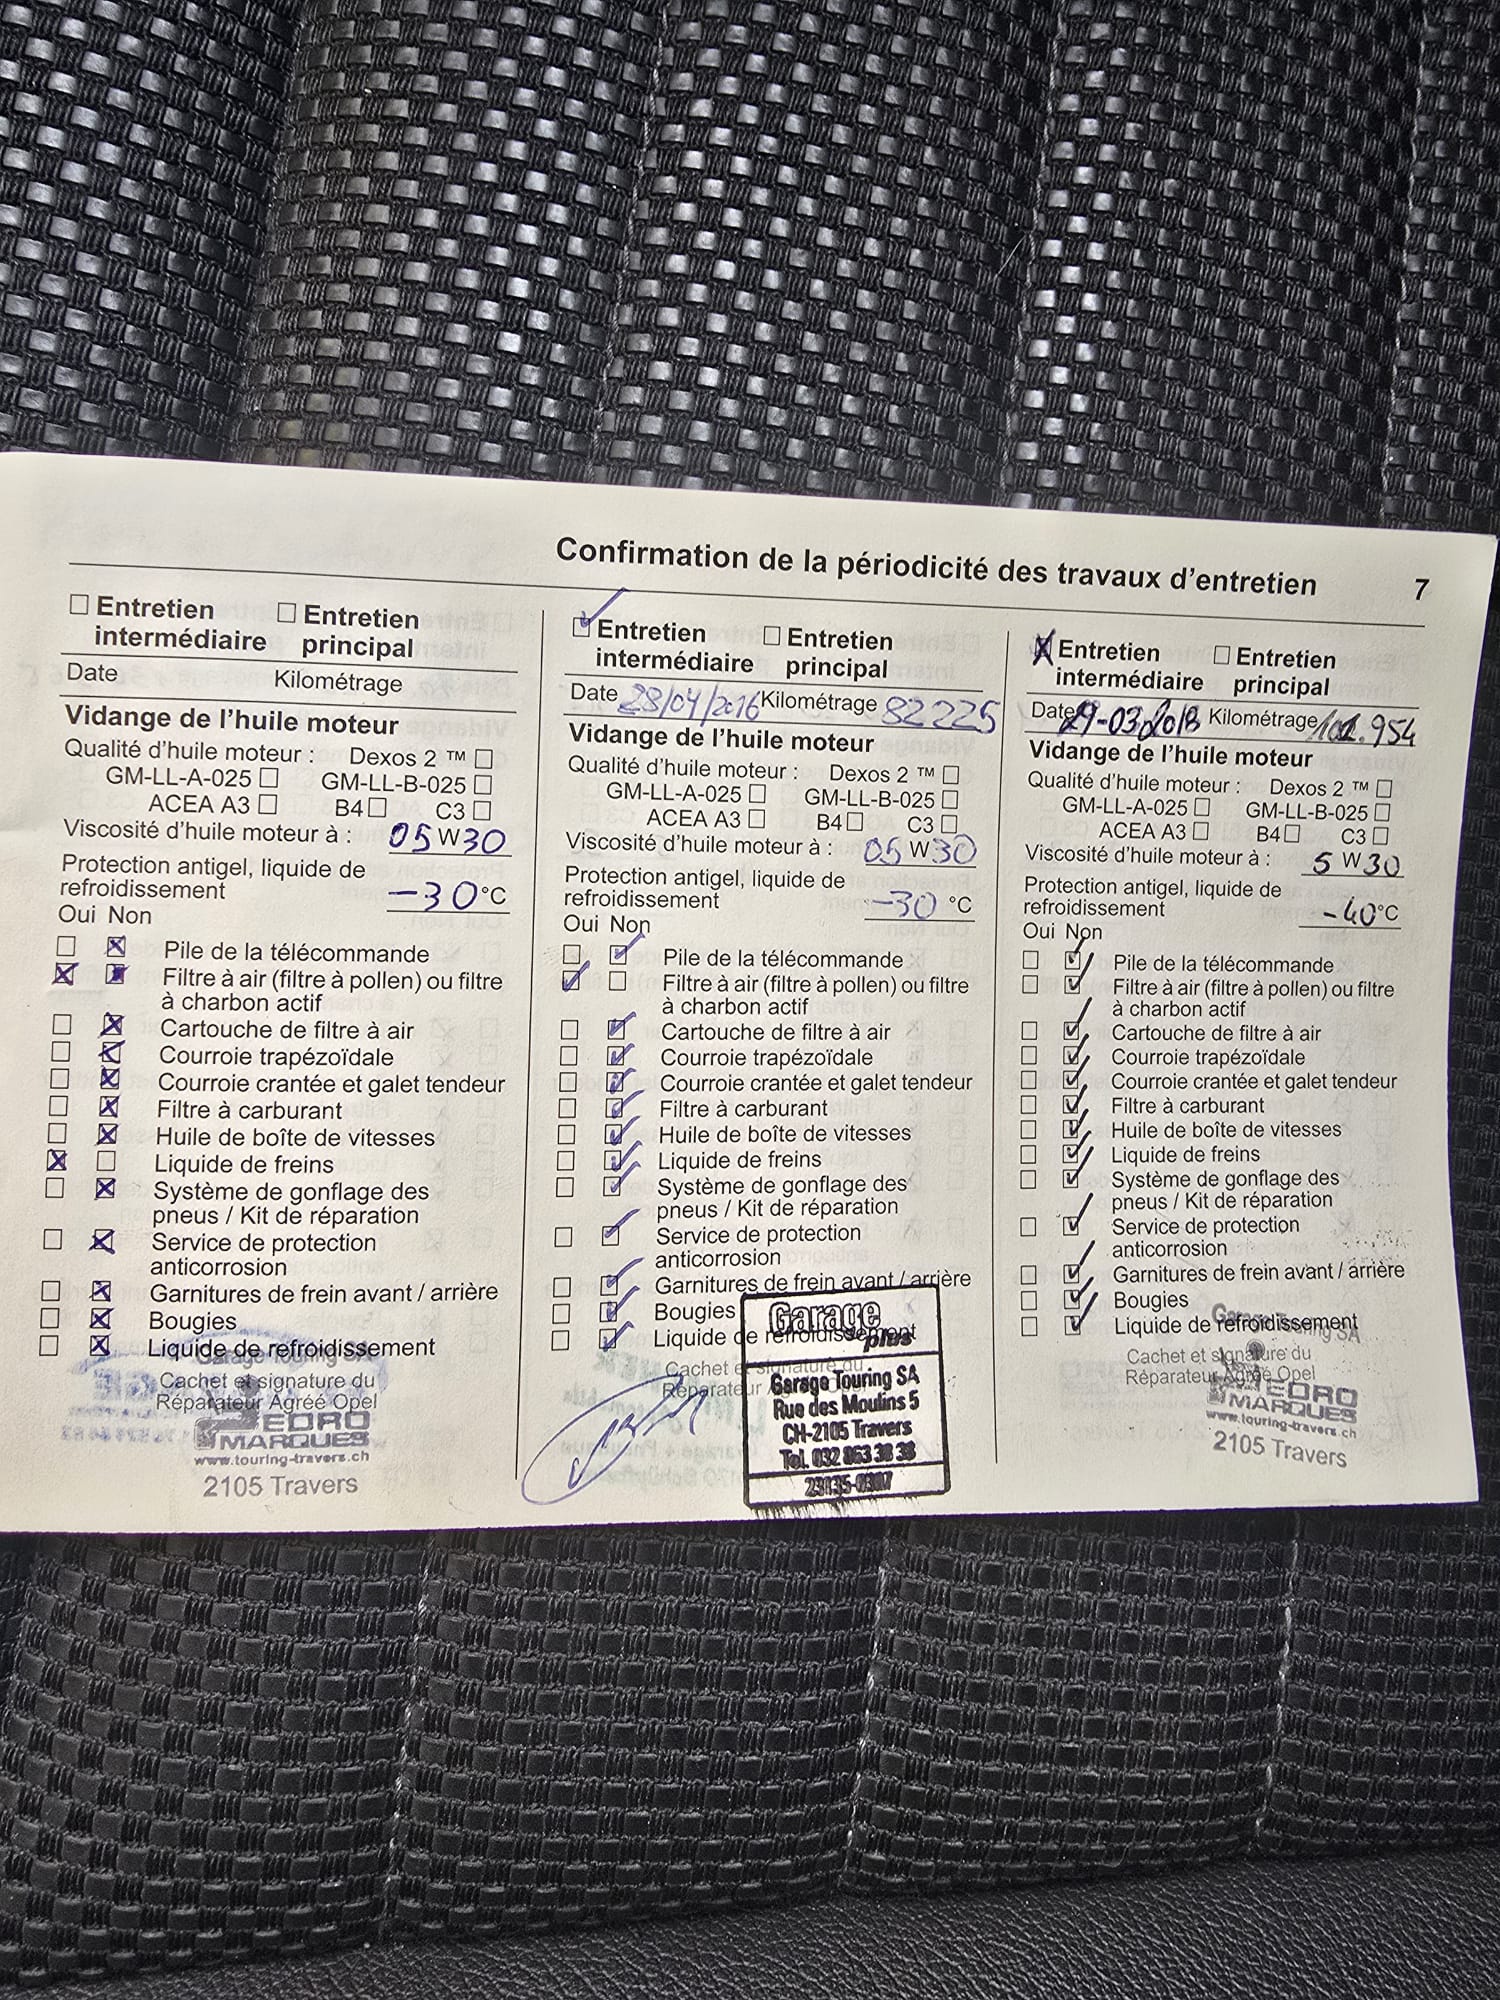 Confirmation de la périodicité des travaux d'entretien 7
Entretien intermédiaire Entretien principal
Date Kilométrage
Vidange de l'huile moteur
Qualité d'huile moteur : Dexos 2 ™
GM-LL-A-025 GM-LL-B-025
ACEA A3 B4 C3
Viscosité d'huile moteur à : 05 W 30
Protection antigel, liquide de
refroidissement -30 °C
Oui Non
Pile de la télécommande
Filtre à air (filtre à pollen) ou filtre
à charbon actif
Cartouche de filtre à air
Courroie trapézoïdale
Courroie crantée et galet tendeur
Filtre à carburant
Huile de boîte de vitesses
Liquide de freins
Système de gonflage des
pneus / Kit de réparation
Service de protection
anticorrosion
Garnitures de frein avant / arrière
Bougies
Liquide de refroidissement
Garage Touring SA
Cachet et signature du
Réparateur Agréé Opel
PEDRO
MARQUES
www.touring-travers.ch
2105 Travers
Entretien intermédiaire Entretien principal
Date 28/04/2016 Kilométrage 82225
Vidange de l'huile moteur
Qualité d'huile moteur : Dexos 2 ™
GM-LL-A-025 GM-LL-B-025
ACEA A3 B4 C3
Viscosité d'huile moteur à : 05 W 30
Protection antigel, liquide de
refroidissement -30 °C
Oui Non
Pile de la télécommande
Filtre à air (filtre à pollen) ou filtre
à charbon actif
Cartouche de filtre à air
Courroie trapézoïdale
Courroie crantée et galet tendeur
Filtre à carburant
Huile de boîte de vitesses
Liquide de freins
Système de gonflage des
pneus / Kit de réparation
Service de protection
anticorrosion
Garnitures de frein avant / arrière
Bougies
Liquide de refroidissement
Cachet et signature du
Réparateur
Garage
plus
Garage Touring SA
Rue des Moulins 5
CH-2105 Travers
Tel. 032 863 38 38
Entretien intermédiaire Entretien principal
Date 29-03-2018 Kilométrage 102.954
Vidange de l'huile moteur
Qualité d'huile moteur : Dexos 2 ™
GM-LL-A-025 GM-LL-B-025
ACEA A3 B4 C3
Viscosité d'huile moteur à : 5 W 30
Protection antigel, liquide de
refroidissement -40 °C
Oui Non
Pile de la télécommande
Filtre à air (filtre à pollen) ou filtre
à charbon actif
Cartouche de filtre à air
Courroie trapézoïdale
Courroie crantée et galet tendeur
Filtre à carburant
Huile de boîte de vitesses
Liquide de freins
Système de gonflage des
pneus / Kit de réparation
Service de protection
anticorrosion
Garnitures de frein avant / arrière
Bougies
Liquide de refroidissement
Garage Touring SA
Cachet et signature du
Réparateur Agréé Opel
PEDRO
MARQUES
www.touring-travers.ch
2105 Travers